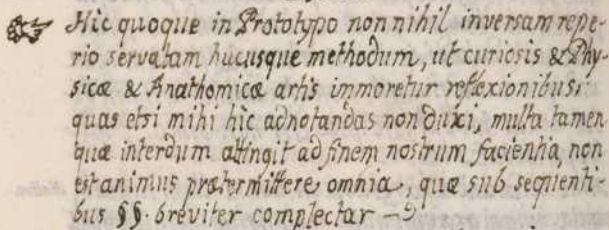 Hic quoque in Prototypo non nihil inversam repe-
rio servatam hucusque methodum, ut curiosis & Phy-
sicæ & Anathomicæ artis immoretur reflexionibus;
quas etsi mihi hic adnotandas non duxi, multa tamen
quæ interdum attingit ad finem nostrum facientia, non
est animus prætermittere omnia, quæ sub sequenti-
bus §§. breviter complectar